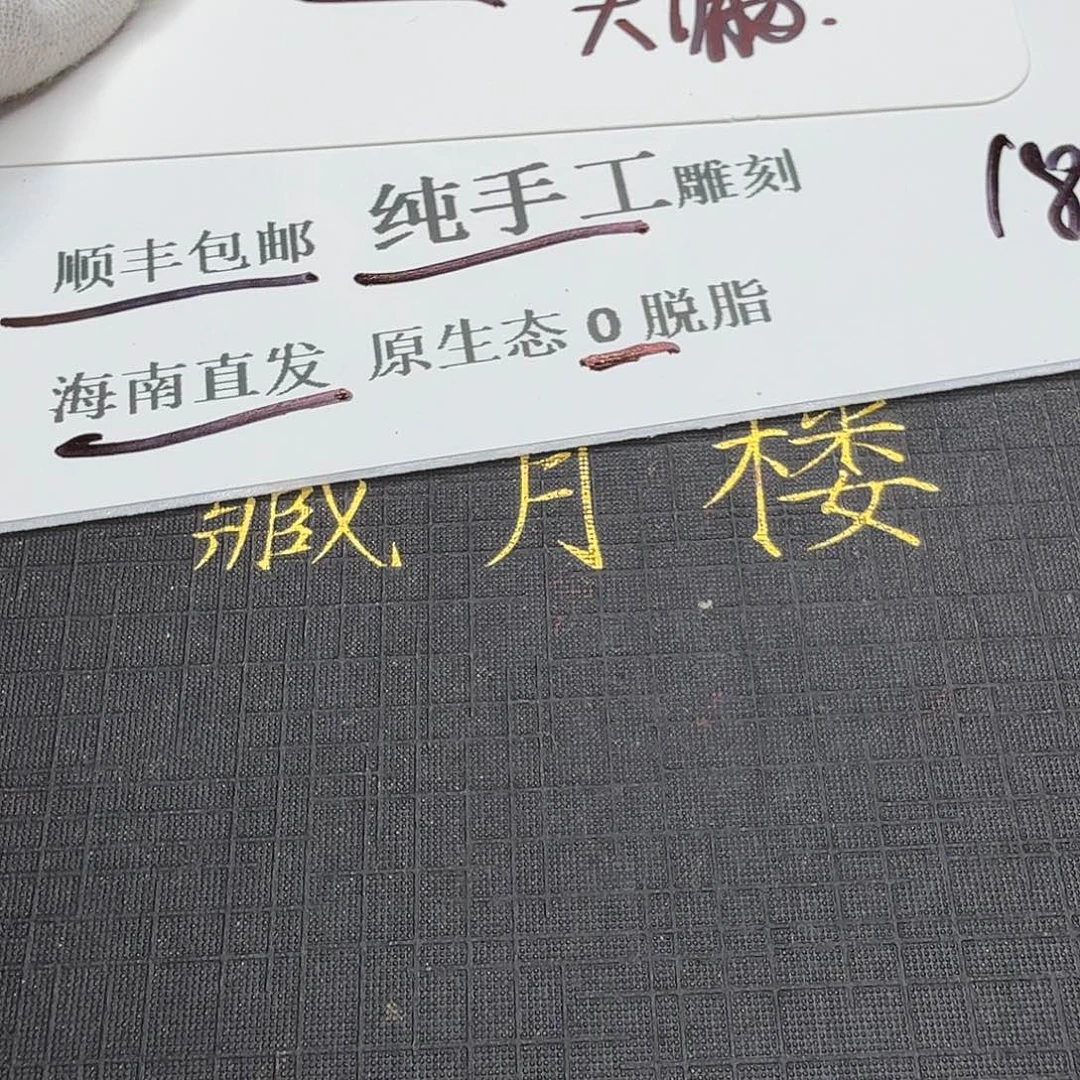 顺丰包邮 纯手工雕刻
18
海南直发 原生态 0 脱脂
藏月楼